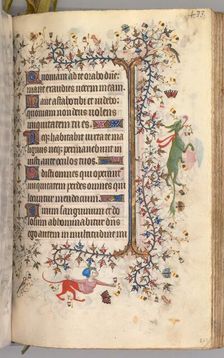 Quoniam ad te orabo dñe:
mane exaudies uocem meam.
Mane astabo tibi et uidebo:
quoniam non deus uolens
iniquitatem tu es.
Neqz habitabit iuxta te ma
lignus: neqz permanebunt in
iusti ante oculos tuos.
Odisti omnes qui operant
iniquitatem perdes omnes qui
loquntur mendacium.
Virum sanguinum et do
losum abhominabitur dñs
ego autem in multitudine mi